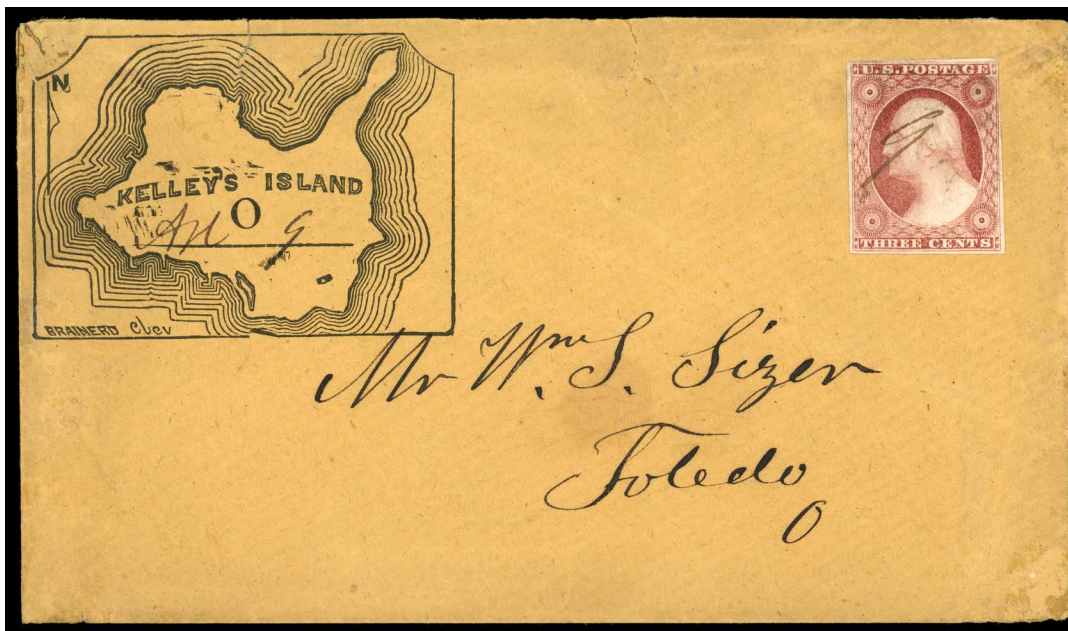 N
KELLEY'S ISLAND
O
9
BRAINERD Clev
U.S. POSTAGE
9
THREE CENTS
Mr Wm. S. Sizer
Toledo
O